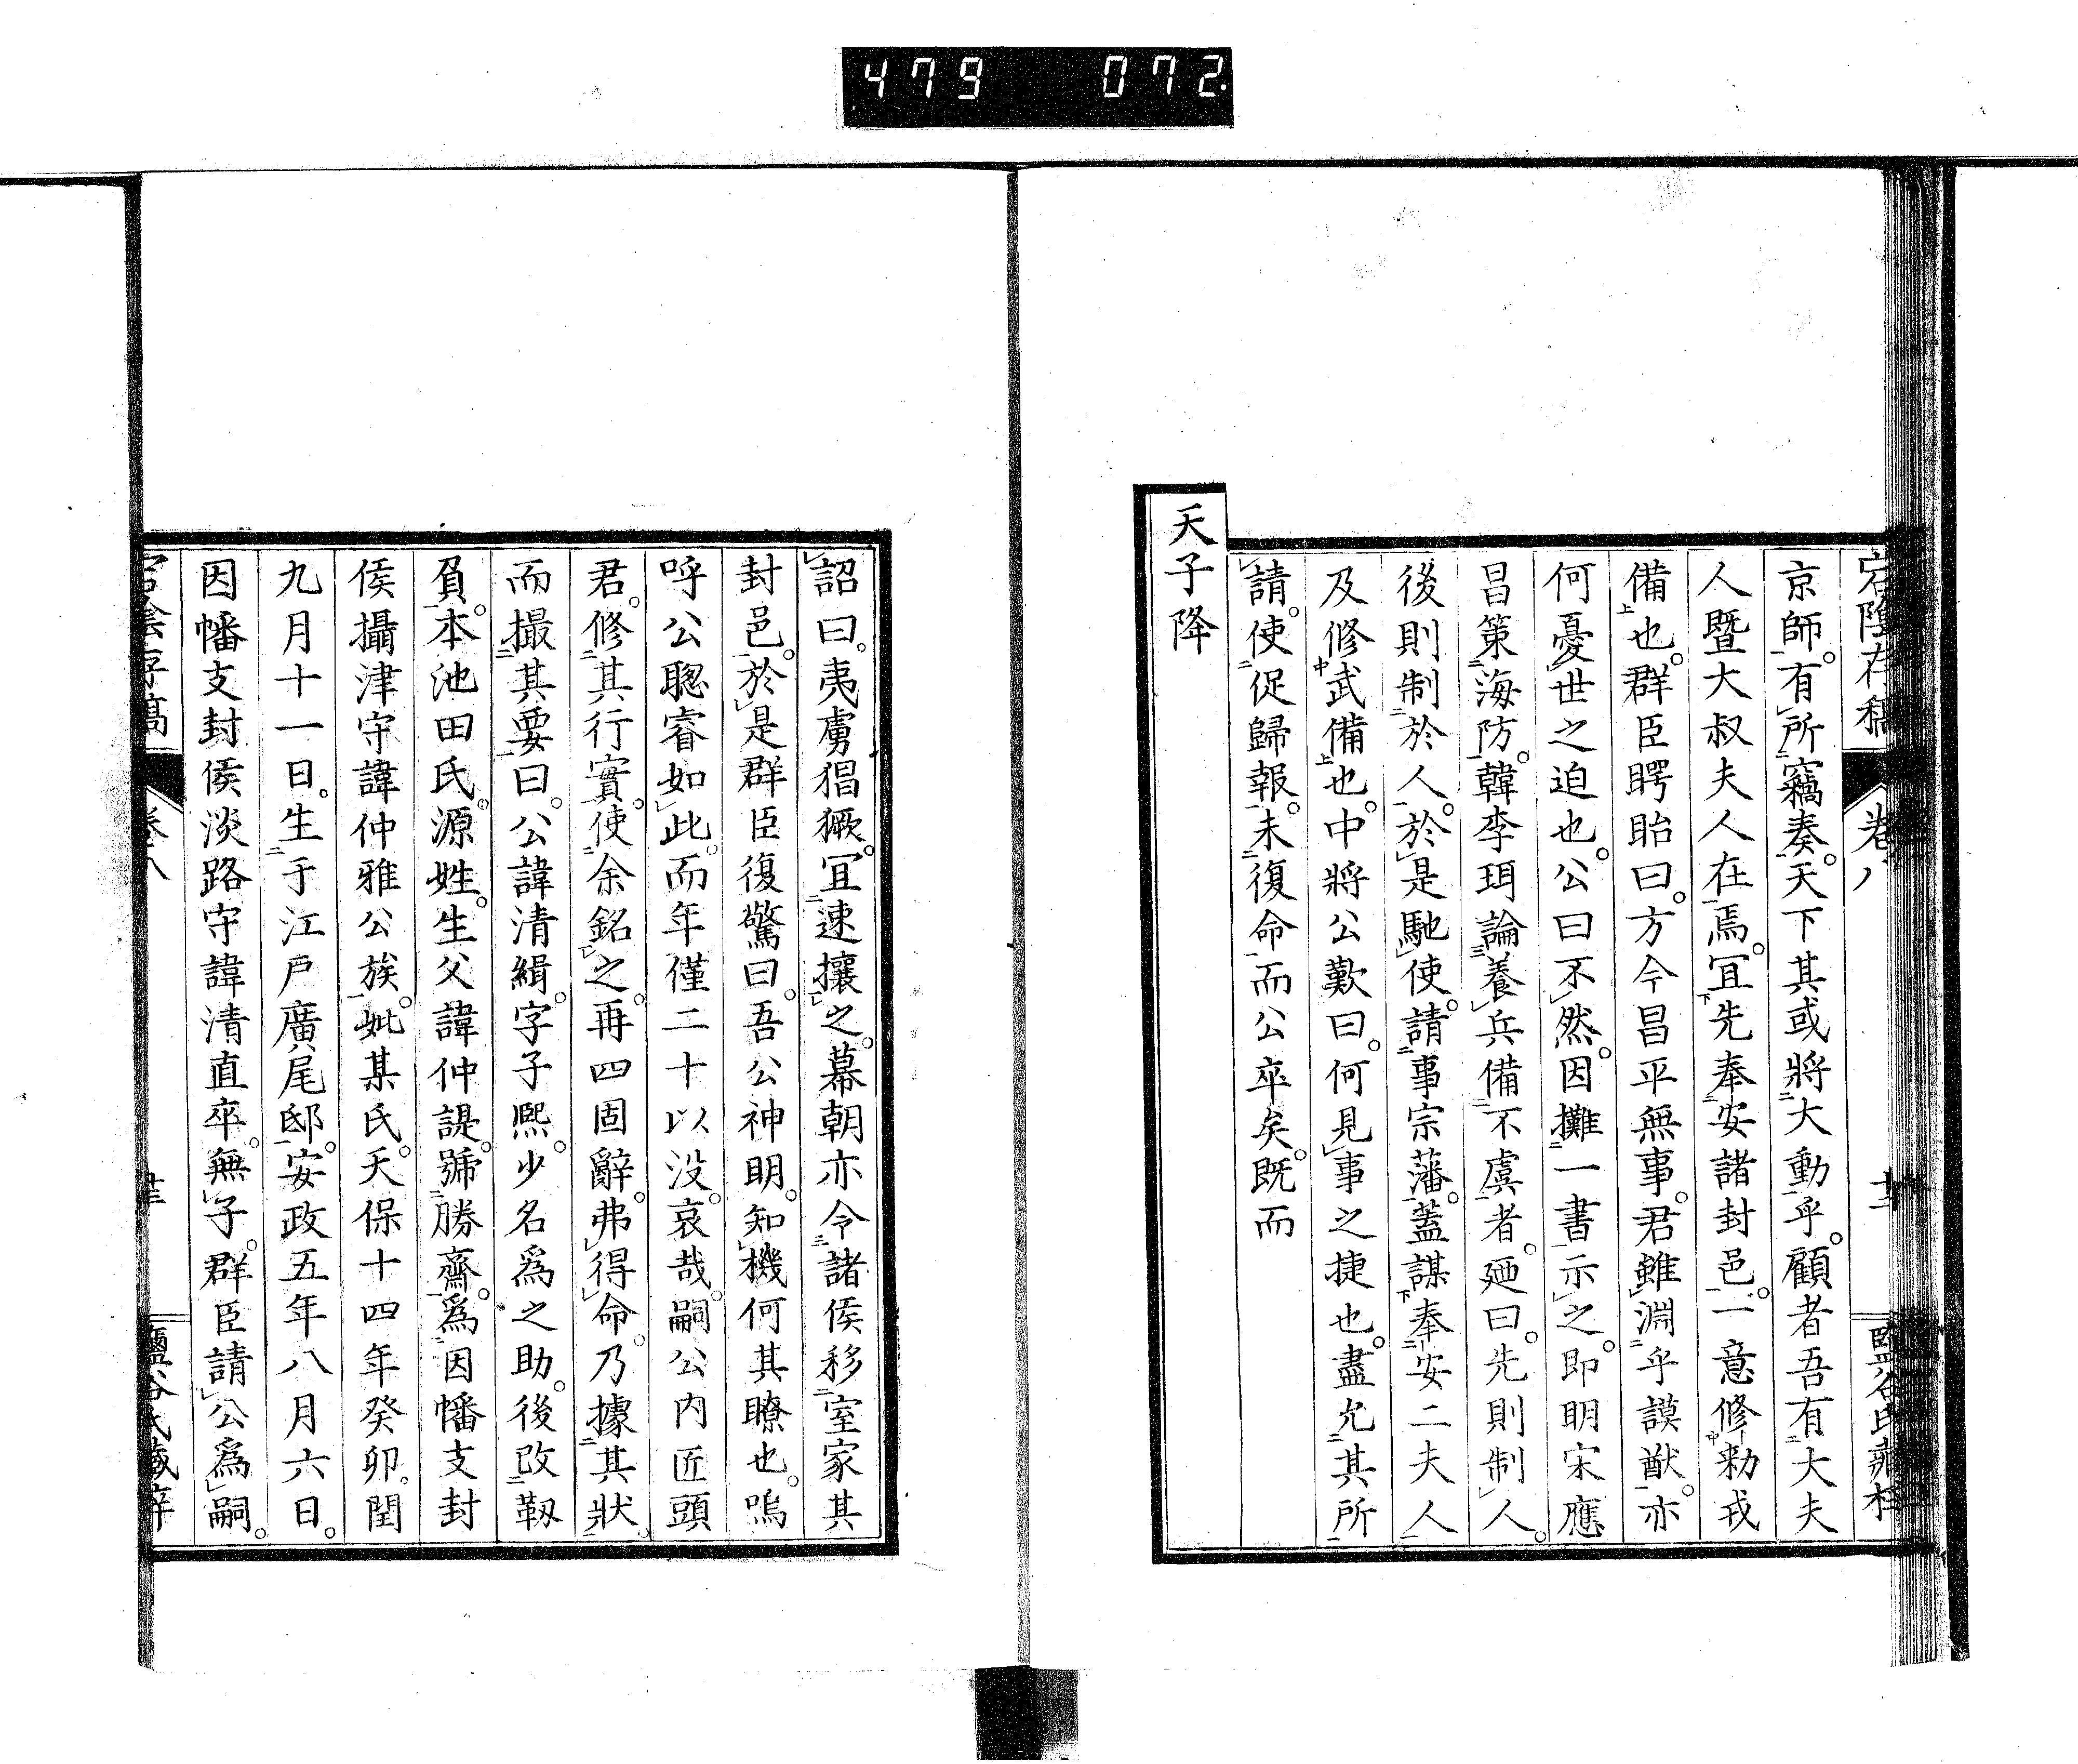 479 072
宕陰存稿
卷八
京師。有所竊奏。天下其或將大動乎。顧者吾有大夫
人暨大叔夫人在焉。宜先奉安諸封邑。一意修勑戎
備也。群臣瞪眙曰。方今昌平無事。君雖淵乎謨猷。亦
何憂世之迫也。公曰不然。因攤一書示之。即明宋應
昌策海防。韓李珥論養兵備不虞者。廼曰。先則制人。
後則制於人。於是馳使。請事宗藩。蓋謀奉安二夫人
及修武備也。中將公歎曰。何見事之捷也。盡允其所
請。使促歸報。未復命而公卒矣。既而
天子降
詔曰。夷虜猖獗。宜速攘之。幕朝亦令諸侯移室家其
封邑。於是群臣復驚曰。吾公神明。知機何其瞭也。嗚
呼公聰睿如此。而年僅二十以没。哀哉。嗣公内匠頭
君。修其行實。使余銘之。再四固辭。弗得命。乃據其狀
而撮其要曰。公諱清緝。字子熙。少名爲之助。後改靱
負。本池田氏。源姓。生父諱仲諟。號勝齋。爲因幡支封
侯攝津守諱仲雅公族。妣某氏。天保十四年癸卯。閏
九月十一日。生于江戸廣尾邸。安政五年八月六日。
因幡支封侯淡路守諱清直卒。無子。群臣請公爲嗣。
宕陰存稿
卷八